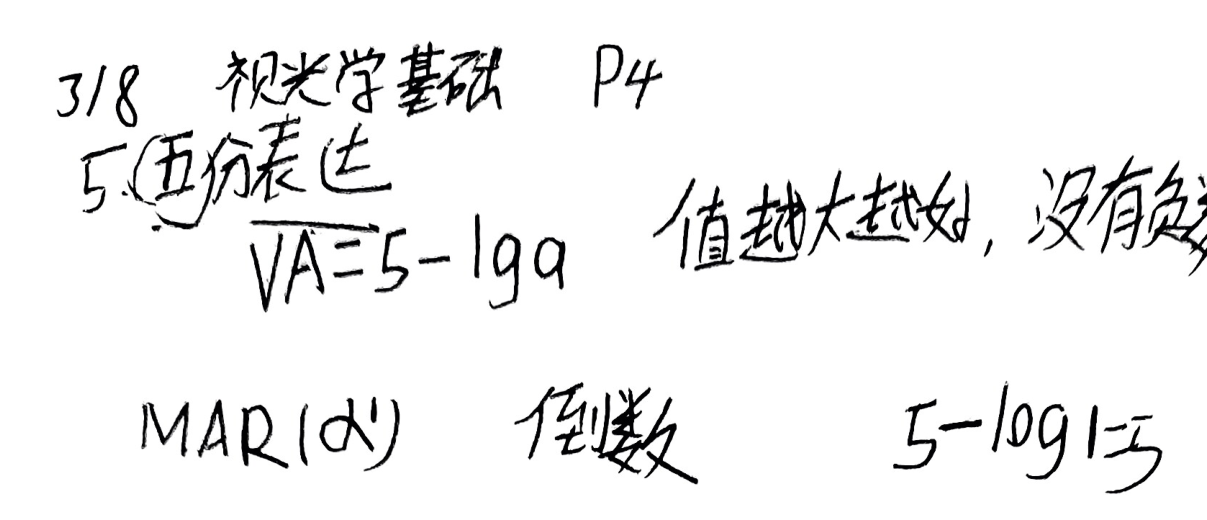 3/8 视光学基础 P4
5.(五分表达
VA=5-lga 值越大越好,没有负
MAR(α') 倒数 5-log1=5